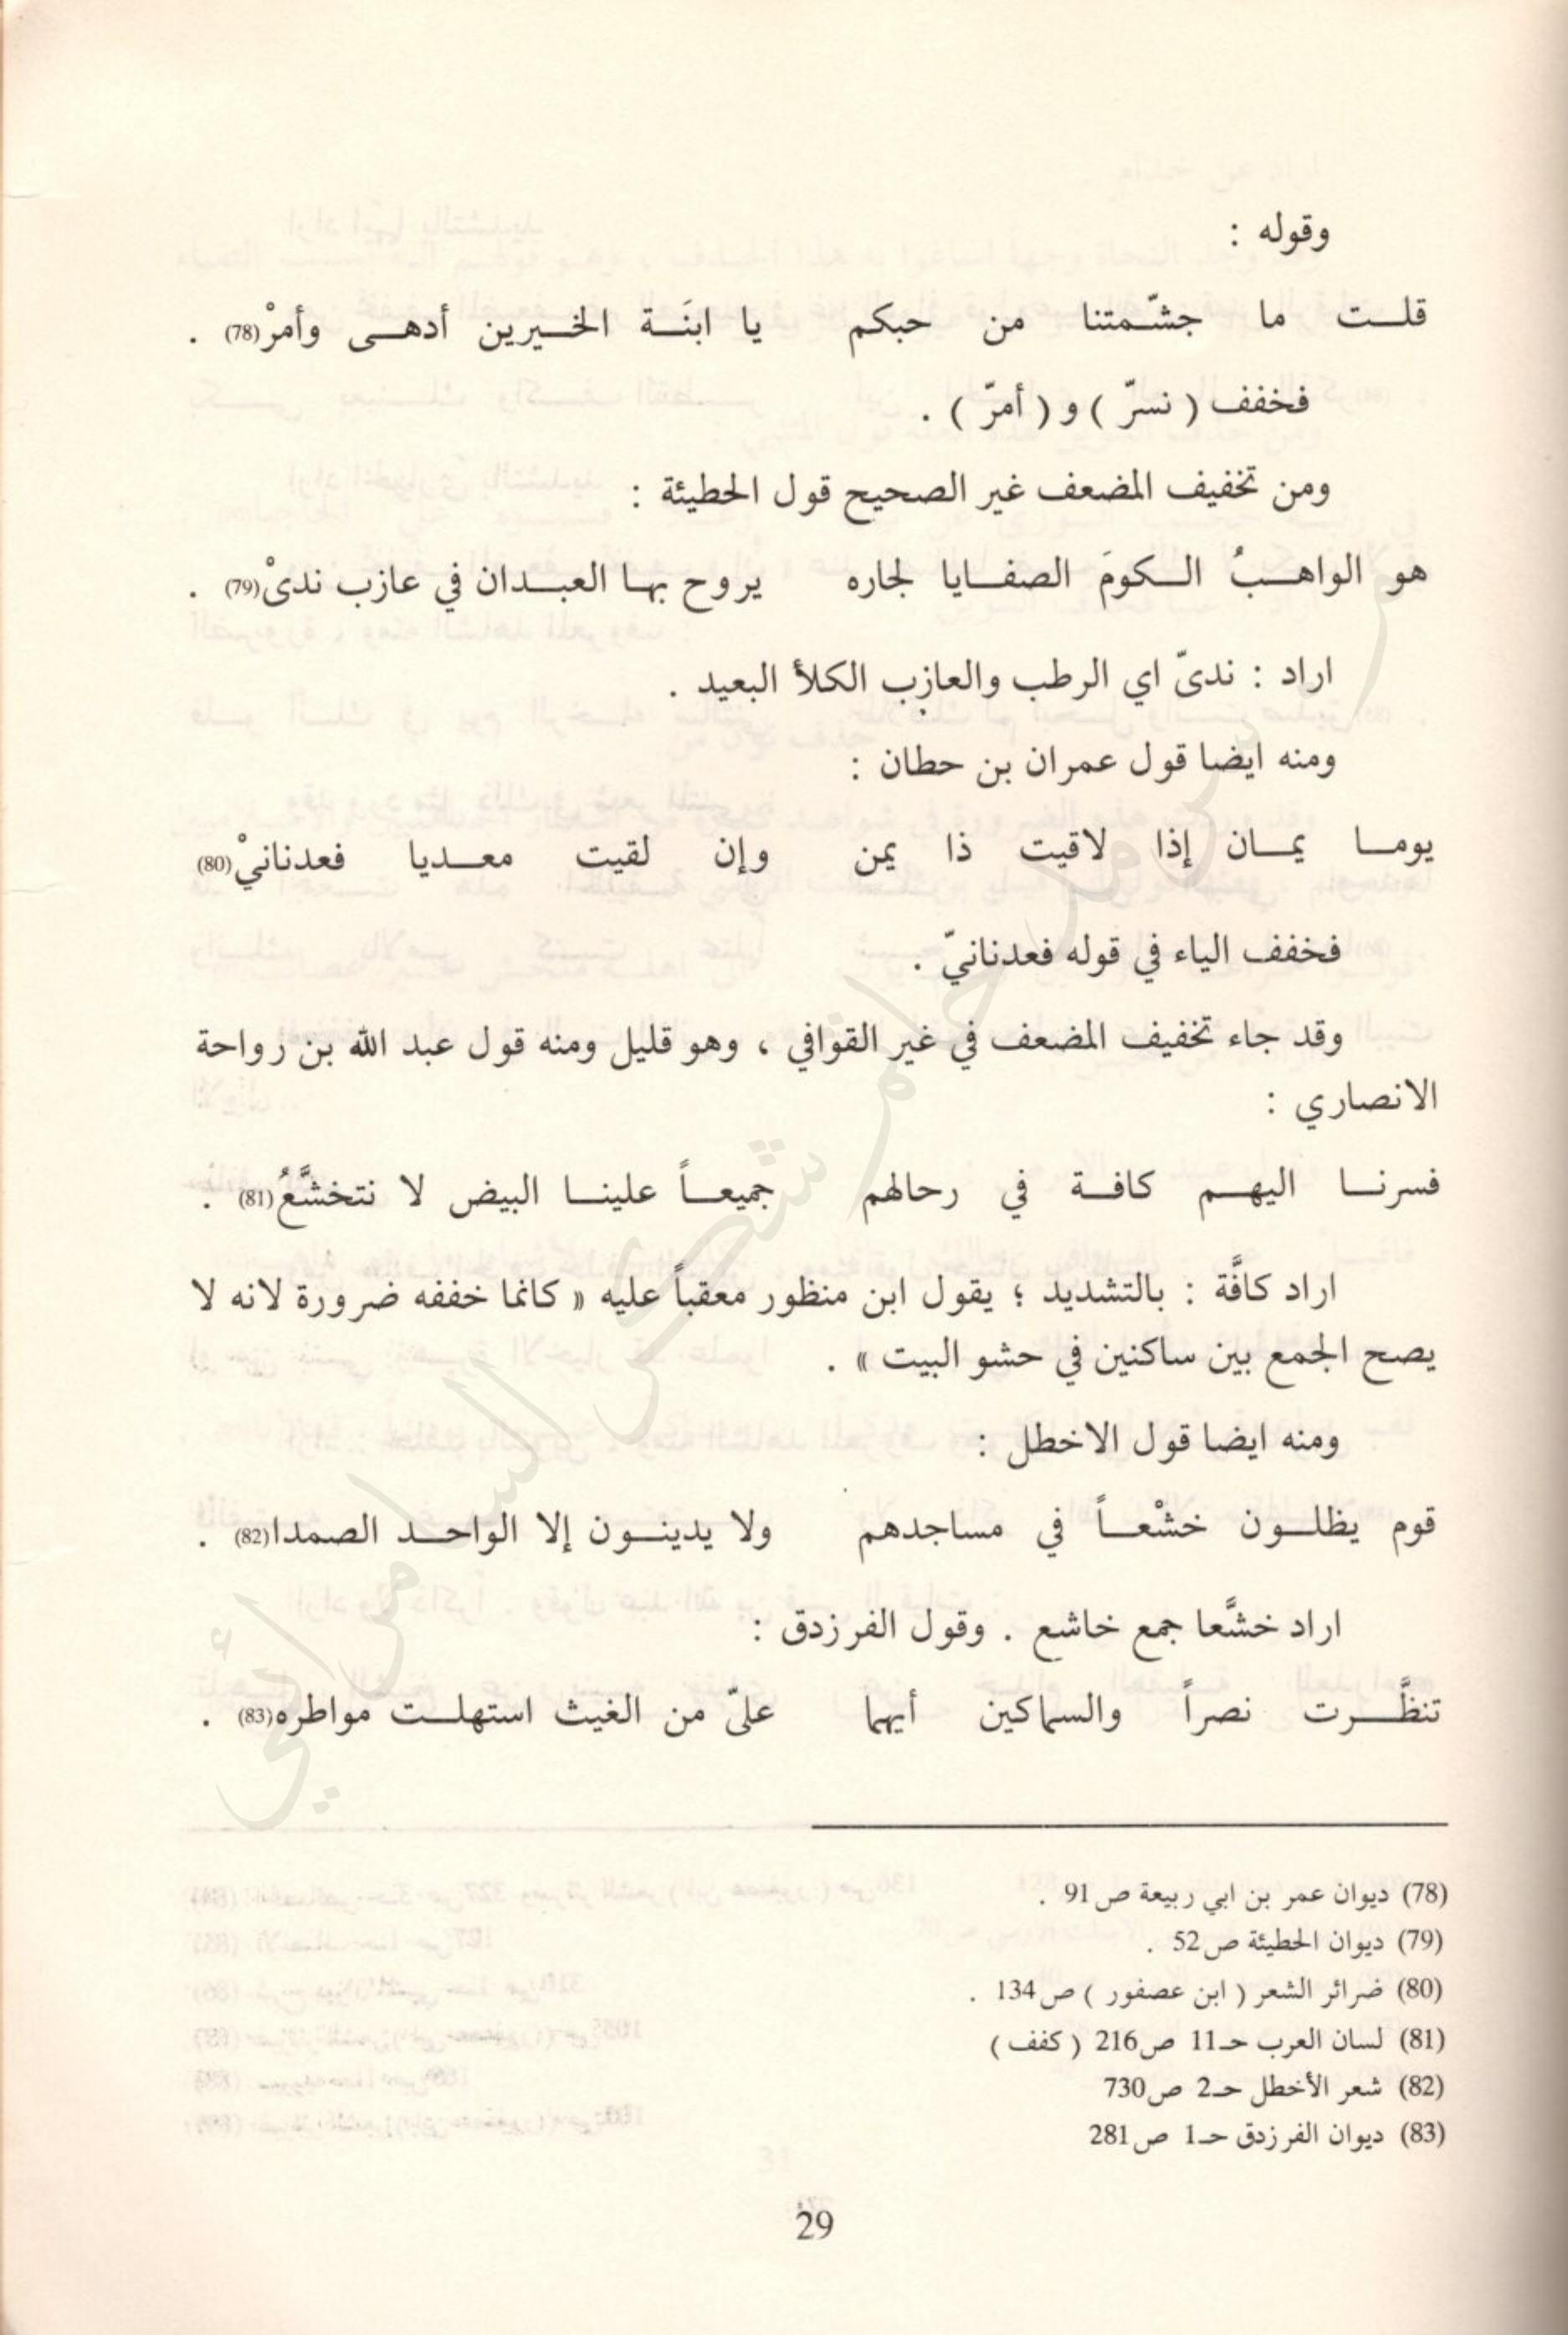 وقوله :
قلت ما جشّمتنا من حبكم يا ابنَة الخيرين أدهى وأمرْ(78) .
فخفف ( نسرّ ) و ( أمرّ ) .
ومن تخفيف المضعف غير الصحيح قول الحطيئة :
هو الواهبُ الكومَ الصفايا لجاره يروح بها العبدان في عازب ندىْ(79) .
اراد : ندىّ اي الرطب والعازب الكلأ البعيد .
ومنه ايضا قول عمران بن حطان :
يوما يمان إذا لاقيت ذا يمن وإن لقيت معديا فعدنانيْ(80)
فخفف الياء في قوله فعدنانيّ .
وقد جاء تخفيف المضعف في غير القوافي ، وهو قليل ومنه قول عبد الله بن رواحة
الانصاري :
فسرنا اليهم كافة في رحالهم جميعاً علينا البيض لا نتخشَّعُ(81) .
اراد كافَّة : بالتشديد ؛ يقول ابن منظور معقباً عليه « كانما خففه ضرورة لانه لا
يصح الجمع بين ساكنين في حشو البيت » .
ومنه ايضا قول الاخطل :
قوم يظلون خشْعاً في مساجدهم ولا يدينون إلا الواحد الصمدا(82) .
اراد خشَّعا جمع خاشع . وقول الفرزدق :
تنظَّرت نصراً والسماكين أيهما عليّ من الغيث استهلت مواطره(83) .
(78) ديوان عمر بن ابي ربيعة ص91 .
(79) ديوان الحطيئة ص52 .
(80) ضرائر الشعر ( ابن عصفور ) ص134 .
(81) لسان العرب حـ11 ص216 ( كفف )
(82) شعر الأخطل حـ2 ص730
(83) ديوان الفرزدق حـ1 ص281
29
حاتم شكر السامرائي